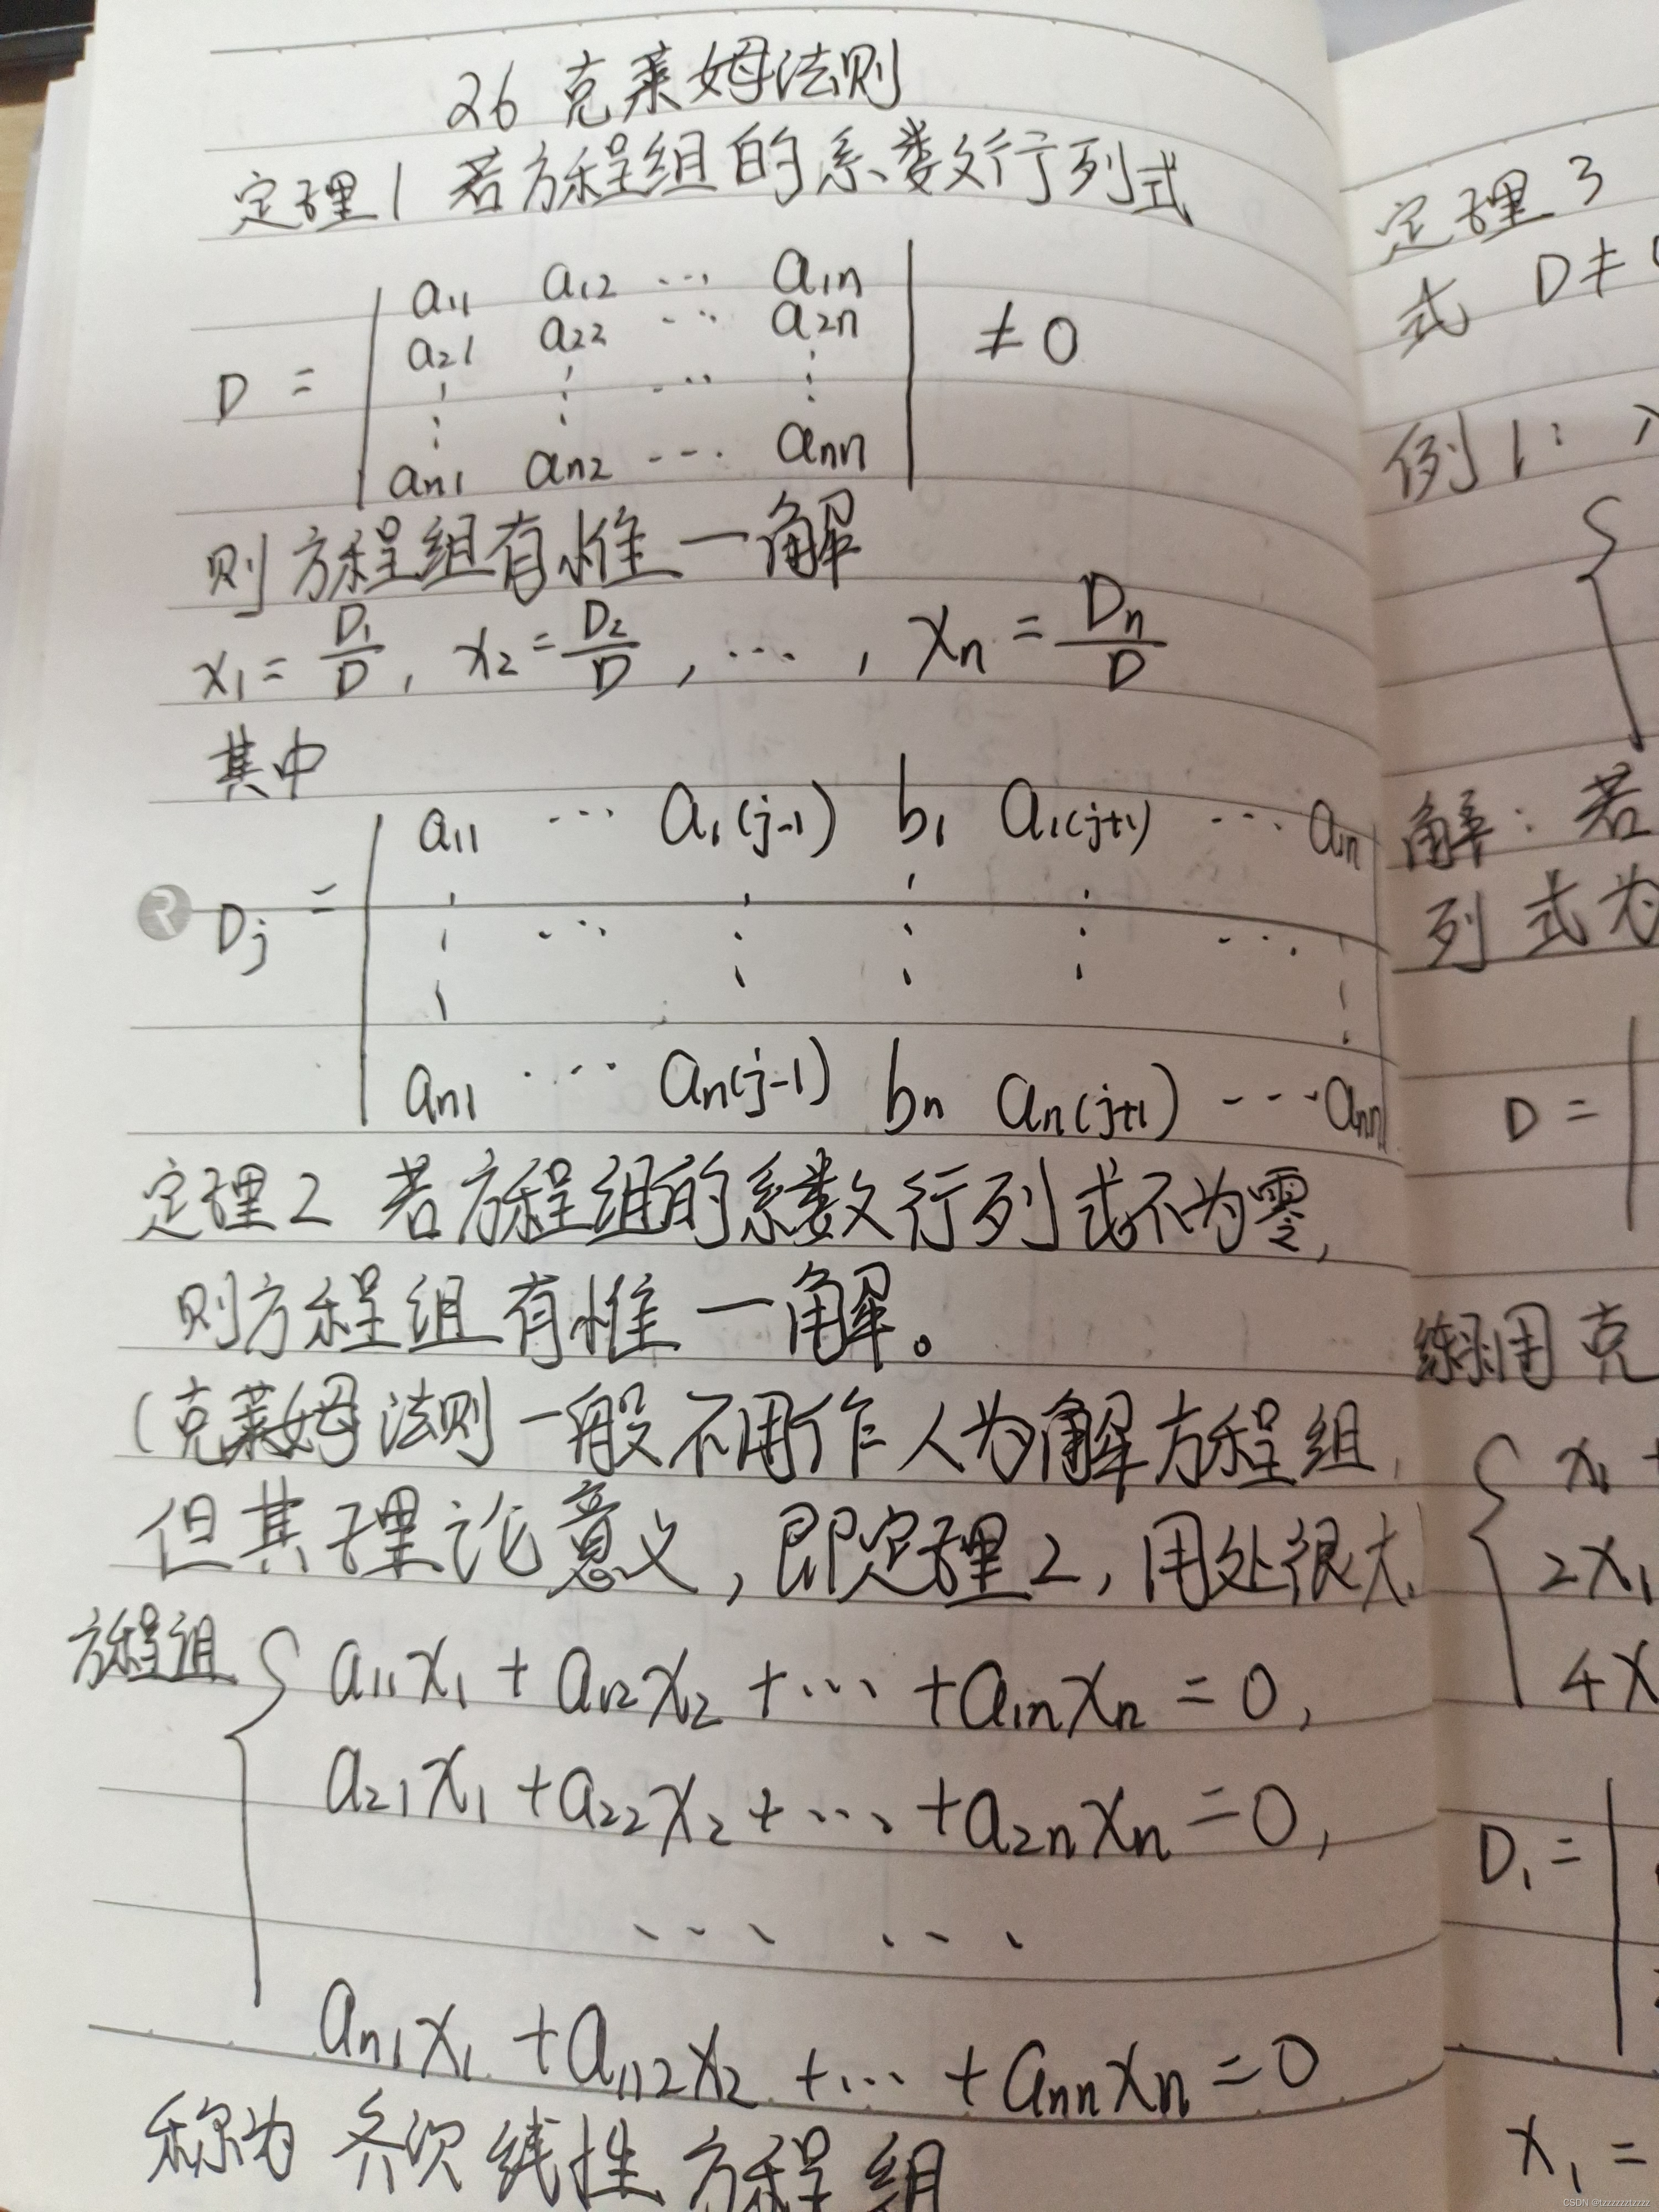 26 克莱姆法则
定理1 若方程组的系数行列式
D = | a11 a12 ... a1n |
| a21 a22 ... a2n |
| ⋮ ⋮ ... ⋮ |
| an1 an2 ... ann | ≠ 0
则方程组有惟一解
x1 = D1/D, x2 = D2/D, ..., xn = Dn/D
其中
Dj = | a11 ... a1(j-1) b1 a1(j+1) ... a1n |
| ⋮ ... ⋮ ⋮ ⋮ ... ⋮ |
| an1 ... an(j-1) bn an(j+1) ... ann |
定理2 若方程组的系数行列式不为零,
则方程组有惟一解。
(克莱姆法则一般不用作人为解方程组,
但其理论意义,即定理2,用处很大)
方程组 { a11x1 + a12x2 + ... + a1nxn = 0,
a21x1 + a22x2 + ... + a2nxn = 0,
... ...
an1x1 + an2x2 + ... + annxn = 0
称为齐次线性方程组
定理3
式 D ≠
例1:
解:若
列式为
D = |
用克
x1 +
2x1
4x
D1 = |
x1 =
CSDN @tzzzzzztzzzz